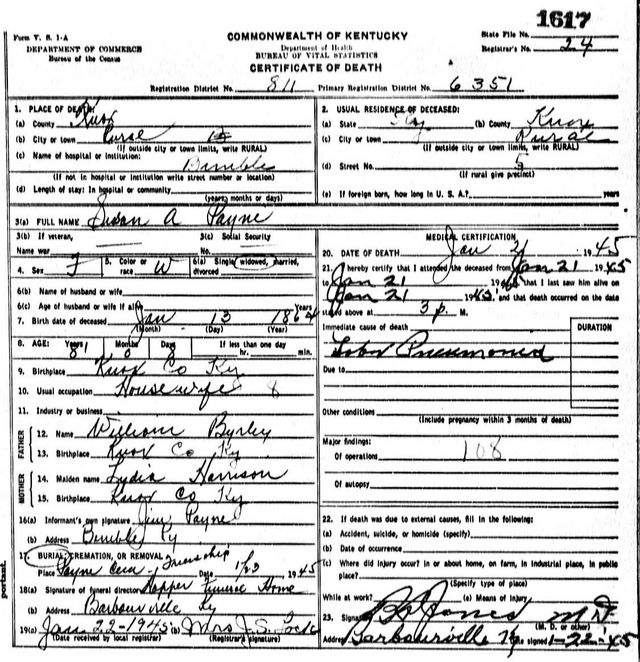 1617
Form V. S. 1-A
COMMONWEALTH OF KENTUCKY
State File No.
DEPARTMENT OF COMMERCE
Department of Health
Registrar's No. 24
Bureau of the Census
BUREAU OF VITAL STATISTICS
CERTIFICATE OF DEATH
Registration District No. 811 Primary Registration District No. 6351
1. PLACE OF DEATH:
(a) County Knox
(b) City or town Rural
(If outside city or town limits, write RURAL)
(c) Name of hospital or institution: Bimble
(If not in hospital or institution write street number or location)
(d) Length of stay: In hospital or community
(years, months or days)
2. USUAL RESIDENCE OF DECEASED:
(a) State Ky (b) County Knox
(c) City or town Rural
(If outside city or town limits, write RURAL)
(d) Street No. 5
(If rural give precinct)
(e) If foreign born, how long in U. S. A.? years
3(a) FULL NAME Susan A Payne
3(b) If veteran,
Name war
3(c) Social Security
No.
4. Sex F 5. Color or race W 6(a) Single, widowed, married, divorced
6(b) Name of husband or wife
6(c) Age of husband or wife if alive years
7. Birth date of deceased Jan 13 1864
(Month) (Day) (Year)
8. AGE: Years 81 Months 0 Days 8 If less than one day
hr. min.
9. Birthplace Knox Co Ky
10. Usual occupation Housewife 8
11. Industry or business
FATHER
12. Name William Byrley
13. Birthplace Knox Co Ky
MOTHER
14. Maiden name Lydia Harrison
15. Birthplace Knox Co Ky
16(a) Informant's own signature Jim Payne
(b) Address Bimble Ky
17. BURIAL, CREMATION, OR REMOVAL
Place Payne Cem Date 1/23 1945
18(a) Signature of funeral director Hopper Funeral Home
(b) Address Barbourville Ky
19(a) Jan 22-1945 (b) Mrs J. S.
(Date received by local registrar) (Registrar's signature)
MEDICAL CERTIFICATION
20. DATE OF DEATH Jan 21 1945
21. I hereby certify that I attended the deceased from Jan 21 1945
to Jan 21 1945 that I last saw him alive on
Jan 21 1945, and that death occurred on the date
stated above at 3 p. M.
Immediate cause of death
DURATION
Lobar Pneumonia
Due to
Other conditions
(Include pregnancy within 3 months of death)
Major findings:
Of operations 108
Of autopsy
22. If death was due to external causes, fill in the following:
(a) Accident, suicide, or homicide (specify)
(b) Date of occurrence
(c) Where did injury occur? in or about home, on farm, in industrial place, in public
place?
(Specify type of place)
While at work? (e) Means of injury
23. Signature Jones M D
(M. D. or other)
Address Barbourville Ky signed 1-22-45
portant.